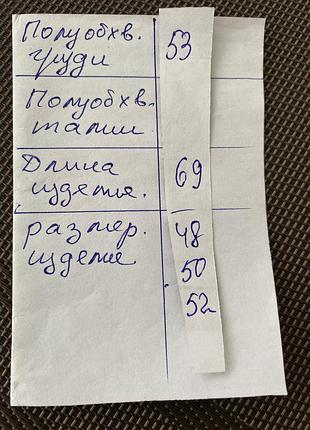 Полуобхв. 53
груди
Полуобхв.
талии
Длина 69
изделие.
размер. 48
изделие 50
52